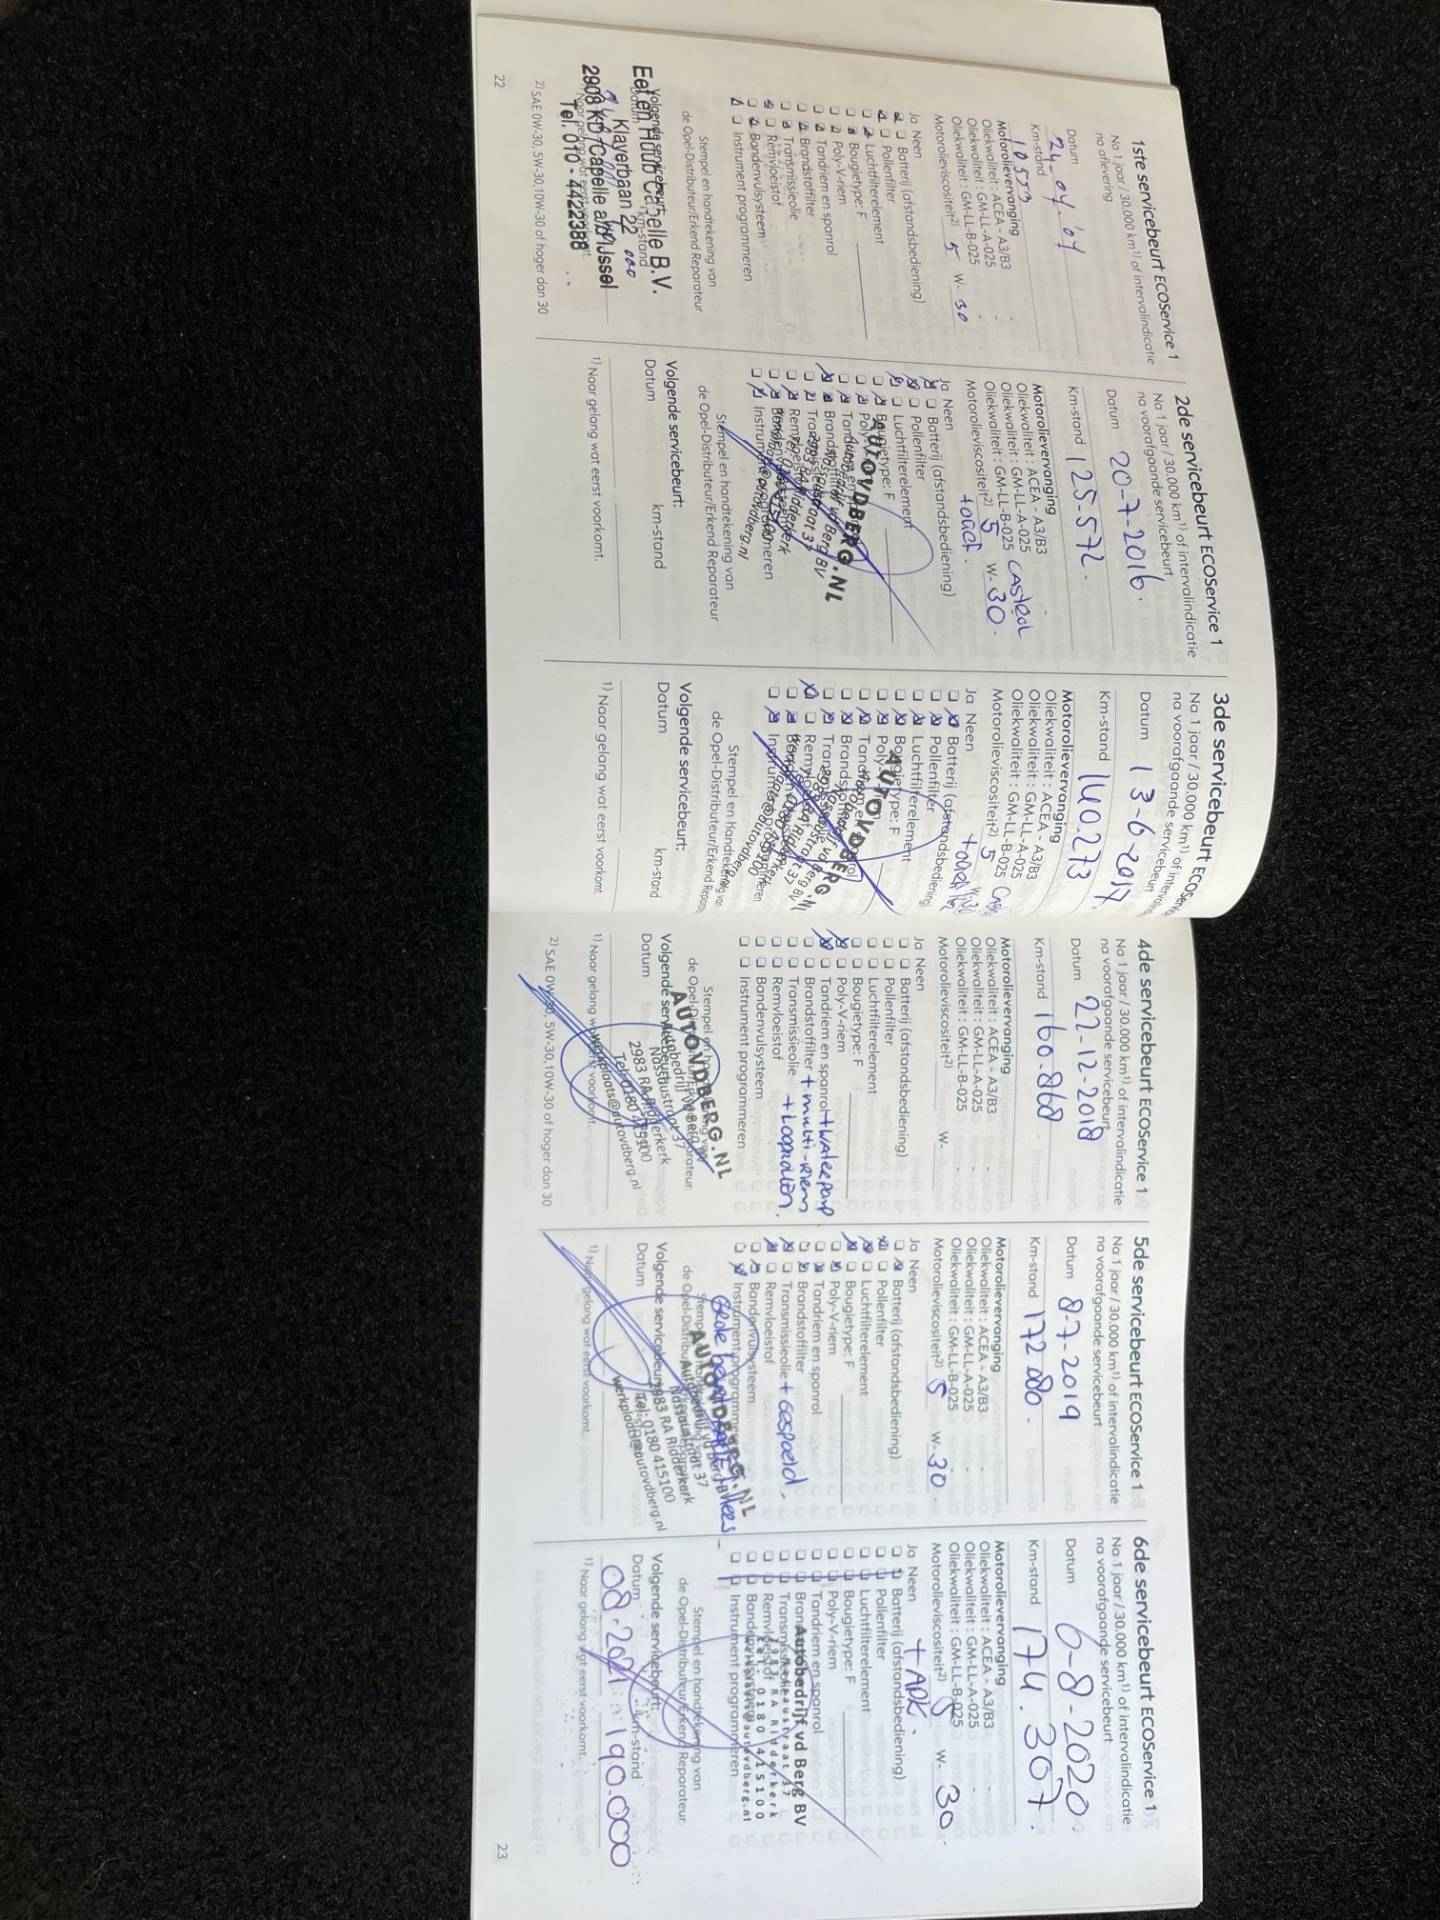 1ste servicebeurt ECOService 1
Na 1 jaar / 30.000 km1) of intervalindicatie
na aflevering
Datum 24-04-'04
Km-stand 10573
Motorolievervanging
Oliekwaliteit : ACEA - A3/B3
Oliekwaliteit : GM-LL-A-025
Oliekwaliteit : GM-LL-B-025
Motorolieviscositeit2) 5 W- 30
Ja Neen
Batterij (afstandsbediening)
Pollenfilter
Luchtfilterelement
Bougietype: F
Poly-V-riem
Tandriem en spanrol
Brandstoffilter
Transmissieolie
Remvloeistof
Bandenvulsysteem
Instrument programmeren
Stempel en handtekening van
de Opel-Distributeur/Erkend Reparateur
Volgende servicebeurt:
Eel en Huub Capelle B.V.
Klaverbaan 22
2908 KD Capelle a/d IJssel
Tel. 010 - 4422388
2) SAE 0W-30, 5W-30,10W-30 of hoger dan 30
22
2de servicebeurt ECOService 1
Na 1 jaar / 30.000 km1) of intervalindicatie
na voorafgaande servicebeurt
Datum 20-7-2016.
Km-stand 125-572.
Motorolievervanging
Oliekwaliteit : ACEA - A3/B3
Oliekwaliteit : GM-LL-A-025 Castrol
Oliekwaliteit : GM-LL-B-025
Motorolieviscositeit2) 5 W- 30.
Ja Neen
Batterij (afstandsbediening)
Pollenfilter
Luchtfilterelement
Bougietype: F
AUTOVDBERG.NL
Stempel en handtekening van
de Opel-Distributeur/Erkend Reparateur
Volgende servicebeurt:
Datum km-stand
1) Naar gelang wat eerst voorkomt.
3de servicebeurt
Na 1 jaar / 30.000 km1) of
na voorafgaande servicebeurt
Datum 13-6-2017.
Km-stand 140.273
Motorolievervanging
Oliekwaliteit : ACEA - A3/B3
Oliekwaliteit : GM-LL-A-025
Oliekwaliteit : GM-LL-B-025
Motorolieviscositeit2) 5
Ja Neen
Batterij (afstandsbediening)
Pollenfilter
Luchtfilterelement
Bougietype: F
Stempel en handtekening van
de Opel-Distributeur/Erkend
Volgende servicebeurt:
Datum km-stand
1) Naar gelang wat eerst voorkomt
4de servicebeurt ECOService 1
Na 1 jaar / 30.000 km1) of intervalindicatie
na voorafgaande servicebeurt
Datum 22-12-2018
Km-stand 160.868
Motorolievervanging
Oliekwaliteit : ACEA - A3/B3
Oliekwaliteit : GM-LL-A-025
Oliekwaliteit : GM-LL-B-025
Motorolieviscositeit2) W-
Ja Neen
Batterij (afstandsbediening)
Pollenfilter
Luchtfilterelement
Bougietype: F
Poly-V-riem
Tandriem en spanrol + waterpomp
Brandstoffilter + multi-riem
Transmissieolie + looprollen.
Remvloeistof
Bandenvulsysteem
Instrument programmeren
AUTOVDBERG.NL
Nassaustraat 37
2983 RA Ridderkerk
Tel: 0180 415100
werkplaats@autovdberg.nl
Datum
2) SAE 0W-30, 5W-30,10W-30 of hoger dan 30
5de servicebeurt ECOService 1
Na 1 jaar / 30.000 km1) of intervalindicatie
na voorafgaande servicebeurt
Datum 8-7-2019
Km-stand 172 080.
Motorolievervanging
Oliekwaliteit : ACEA - A3/B3
Oliekwaliteit : GM-LL-A-025
Oliekwaliteit : GM-LL-B-025
Motorolieviscositeit2) 5 W- 30
Ja Neen
Batterij (afstandsbediening)
Pollenfilter
Luchtfilterelement
Bougietype: F
Poly-V-riem
Tandriem en spanrol
Brandstoffilter
Transmissieolie + gespoeld.
Remvloeistof
Bandenvulsysteem
Instrument programmeren
AUTOVDBERG.NL
2983 RA Ridderkerk
Tel: 0180 415100
werkplaats@autovdberg.nl
Datum
1) Naar gelang wat eerst voorkomt.
6de servicebeurt ECOService 1
Na 1 jaar / 30.000 km1) of intervalindicatie
na voorafgaande servicebeurt
Datum 6-8-2020.
Km-stand 174.307.
Motorolievervanging
Oliekwaliteit : ACEA - A3/B3
Oliekwaliteit : GM-LL-A-025
Oliekwaliteit : GM-LL-B-025
Motorolieviscositeit2) 5 W- 30
Ja Neen + APK.
Batterij (afstandsbediening)
Pollenfilter
Luchtfilterelement
Bougietype: F
Poly-V-riem
Tandriem en spanrol
Autobedrijf vd Berg BV
Nassaustraat 37
2983 RA Ridderkerk
Tel: 0180 415100
Instrument programmeren
Stempel en handtekening van
de Opel-Distributeur/Erkend Reparateur
Volgende servicebeurt:
Datum km-stand
08-2021 190.000
1) Naar gelang wat eerst voorkomt.
23